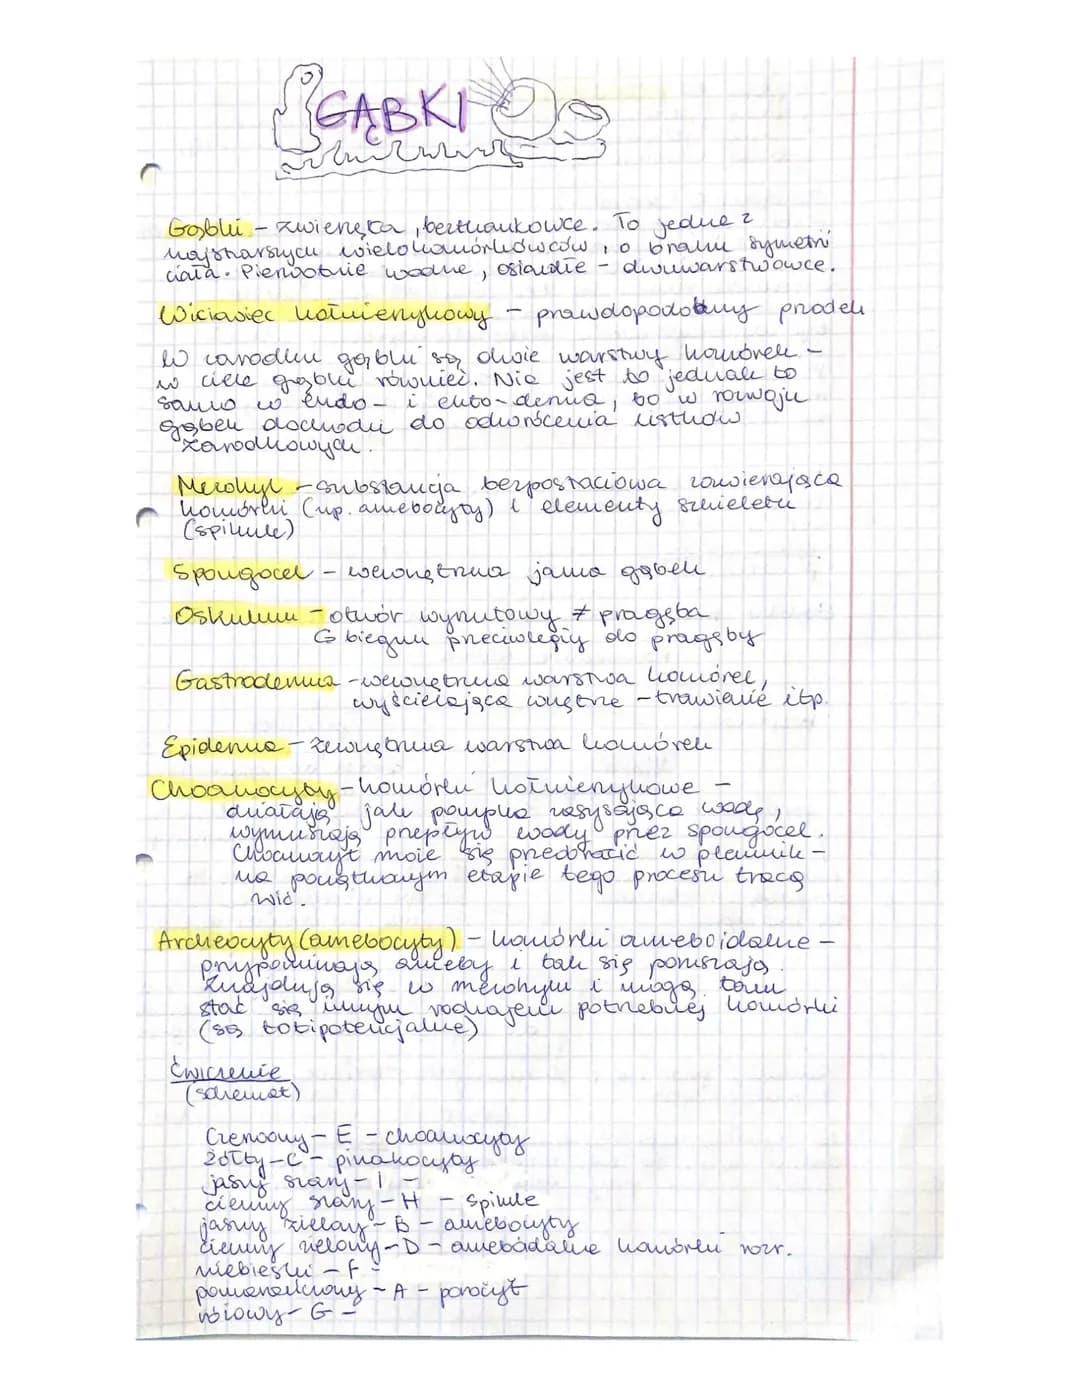 GĄBKI
Gąbki - zwierzęta, beztkankowce. To jedne z
najstarszych wielokomórkowców, o braku symetrii
ciała. Pierwotnie wodne, osiadłe - dwuwarstwowce.
Wiciowiec kołnierzykowy - prawdopodobny przodek
W zarodku gąbki są dwie warstwy komórek -
w ciele gąbki również. Nie jest to jednak to
samo co endo- i ekto-derma, bo w rozwoju
gąbek dochodzi do odwrócenia listków
zarodkowych.
Mezohyl - substancja bezpostaciowa zawierająca
komórki (np. amebocyty) i elementy szkieletu
(spikule)
Spongocel - wewnętrzna jama gąbek
Oskulum - otwór wyrzutowy ≠ pragęba
↳ biegun przeciwległy do pragęby
Gastroderma - wewnętrzna warstwa komórek,
wyścielająca wnętrze - trawienie itp.
Epiderma - zewnętrzna warstwa komórek
Choanocyty - komórki kołnierzykowe -
działają jak pompka zasysająca wodę,
wymuszają przepływ wody przez spongocel.
Choanocyt może się przedobrazić w plemnik -
na początkowym etapie tego procesu tracą
wić.
Archeocyty (amebocyty) - komórki ameboidalne -
przypominają ameby i tak się poruszają.
Znajdują się w mezohylu i mogą tam
stać się innym rodzajem potrzebnej komórki
(są totipotencjalne)
Ćwiczenie
(schemat)
Czerwony - E - choanocyty
żółty - C - pinakocyty
jasny szary - I -
ciemny szary - H - spikule
jasny zielony - B - amebocyty
ciemny zielony - D - amebodalne komórki rozr.
niebieski - F -
pomarańczowy - A - porocyt
różowy - G -